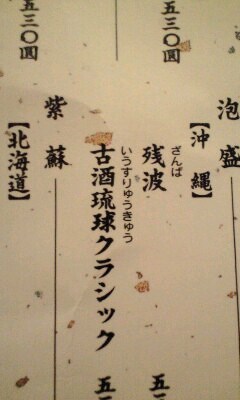 泡盛
【沖縄】
ざんば
残波
いうすりゅうきゅう
古酒琉球クラシック
紫蘇
【北海道】
五三〇圓
五三〇圓
五
五